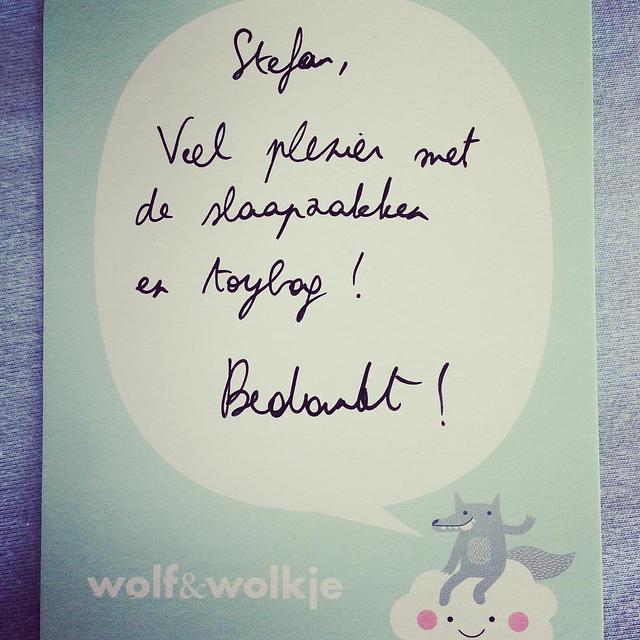 Stefan,
Veel plezier met
de slaapzakken
en toybag!
Bedankt!
wolf&wolkje